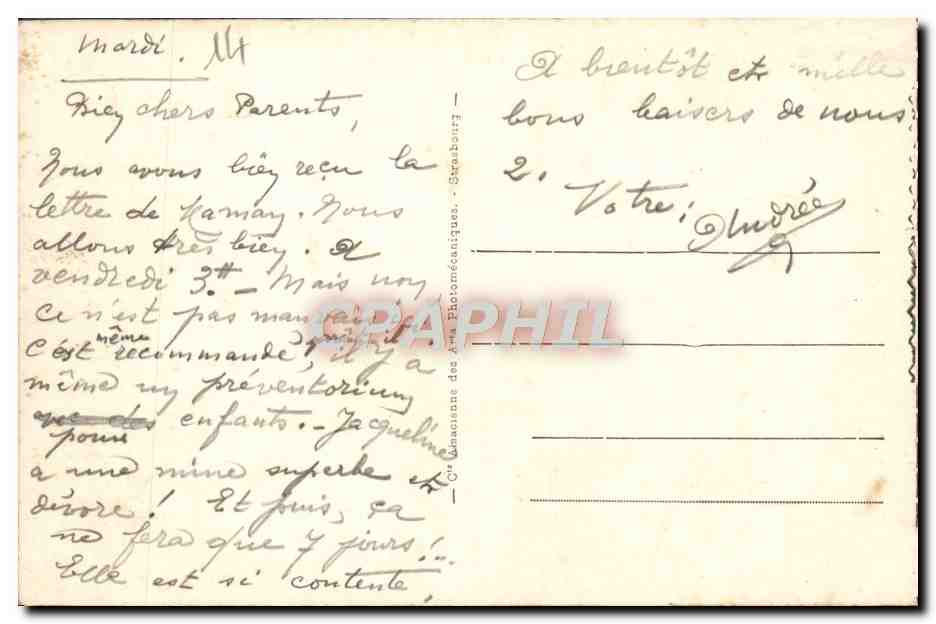 Mardi. 14
Bien chers Parents,
Nous avons bien reçu la
lettre de Maman. Nous
allons très bien. A
vendredi 3.H – Mais non,
ce n'est pas mauvais ici,
c'est même recommandé, il y a
même un préventorium
pour enfants. – Jacqueline
a une mine superbe et
dévore! Et puis, ça
ne fera que 7 jours!..
Elle est si contente.
A bientôt et mille
bons baisers de nous
2. Votre: Andrée
Cie Alsacienne des Arts Photomécaniques. - Strasbourg
CPAPHIL